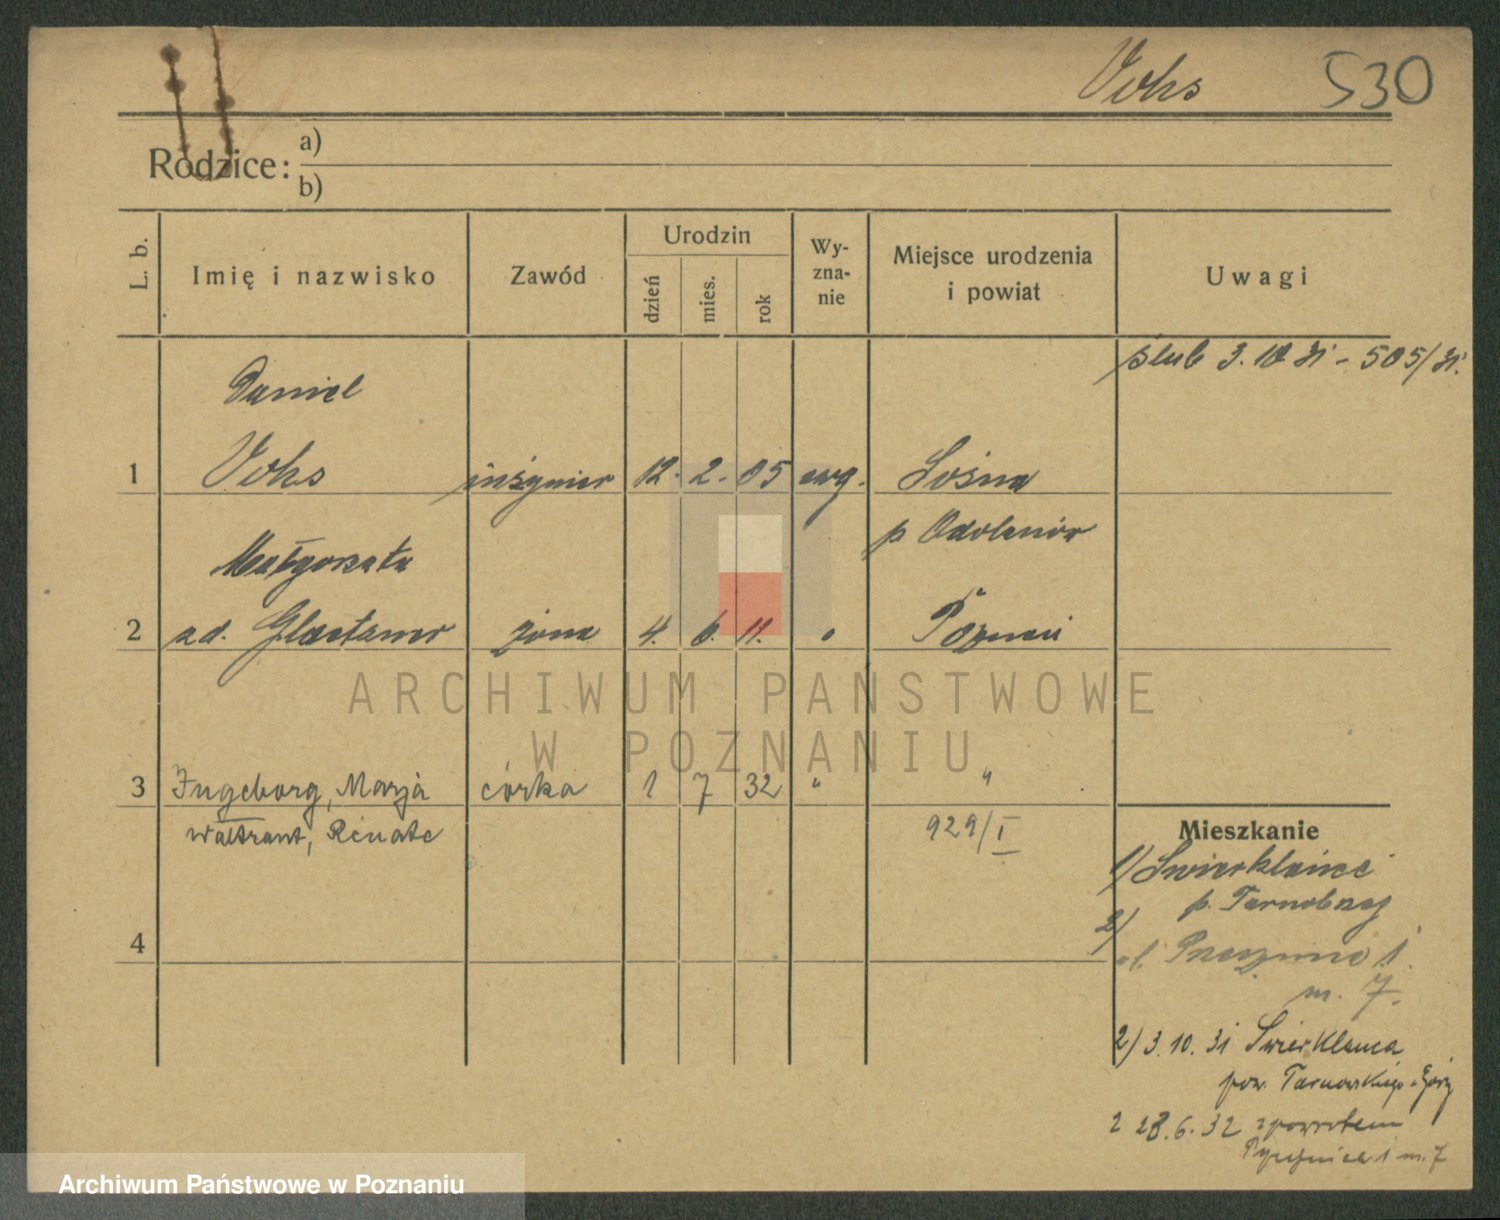 Vohs 530
Rodzice: a)
b)
L. b. Imię i nazwisko Zawód Urodzin dzień mies. rok Wy-zna-nie Miejsce urodzenia i powiat Uwagi
ślub 3.10.31 - 505/31.
Daniel
1 Vohs inżynier 12. 2. 05 ewg. Sośna
p Odolanów
Małgorzata
2 zd. Glaetzner żona 4. 6. 11. " Poznań
ARCHIWUM PAŃSTWOWE
W POZNANIU
3 Ingeborg, Marja córka 1 7 32 " "
Waltraut, Renate 929/I
Mieszkanie
1) Swierklaniec
p. Tarnobrzeg
4
2)
ul. 1.
m. 7.
2) 3.10.31 Swierklanca
pow. Tarnowskiego-Góry
2 28.6.32 zpowrotem
1 m. 7
Archiwum Państwowe w Poznaniu